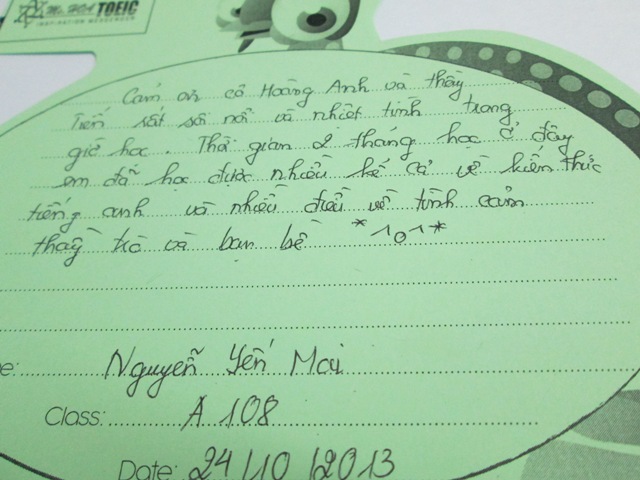 Ms. HOA TOEIC
INSPIRATION MESSENGER
Cám ơn cô Hoàng Anh và thầy
Tiến rất sôi nổi và nhiệt tình trong
giờ học. Thời gian 2 tháng học ở đây
em đã học được nhiều kể cả về kiến thức
tiếng anh và nhiều điều về tình cảm
thầy trò và bạn bè *^o^*
Nguyễn Yến Mai
Class: A 108
Date: 24/10/2013